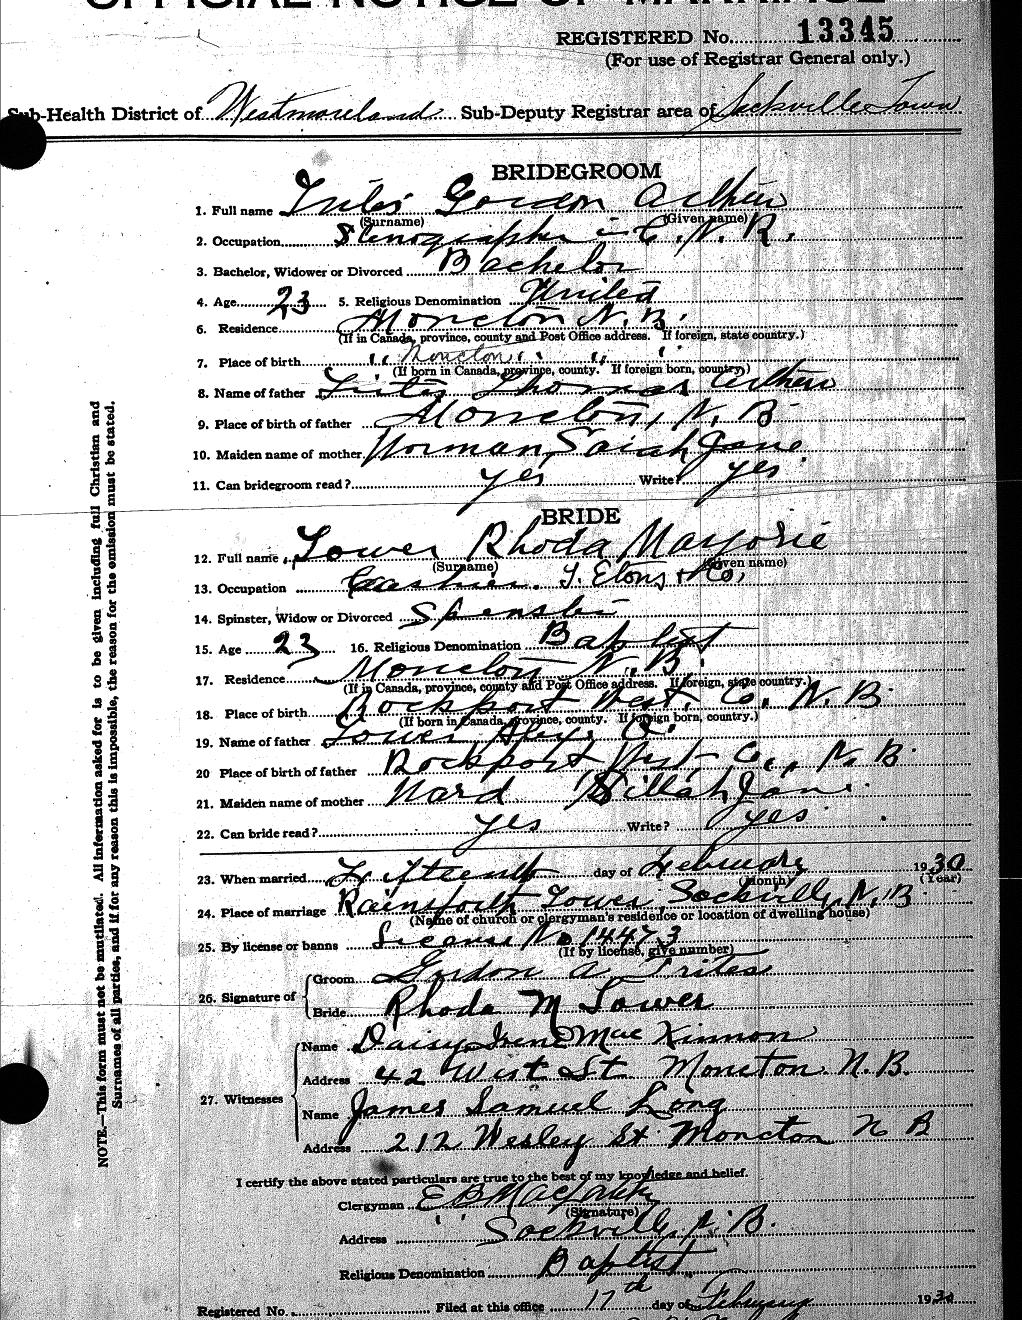 OFFICIAL NOTICE OF MARRIAGE
REGISTERED No. 13345
(For use of Registrar General only.)
Sub-Health District of Westmoreland Sub-Deputy Registrar area of Sackville Town
BRIDEGROOM
1. Full name Trites Gordon Arthur
(Surname) (Given name)
2. Occupation Stenographer - C.N.R.
3. Bachelor, Widower or Divorced Bachelor
4. Age 23 5. Religious Denomination United
6. Residence Moncton N.B.
(If in Canada, province, county and Post Office address. If foreign, state country.)
7. Place of birth " Moncton " " "
(If born in Canada, province, county. If foreign born, country)
8. Name of father Trites Thomas Arthur
9. Place of birth of father Moncton, N. B.
10. Maiden name of mother Norman, Sarah Jane
11. Can bridegroom read? yes Write? yes
BRIDE
12. Full name Tower Rhoda Marjorie
(Surname) (Given name)
13. Occupation Cashier. T. Etons & Co,
14. Spinster, Widow or Divorced Spinster
15. Age 23 16. Religious Denomination Baptist
17. Residence Moncton N.B.
(If in Canada, province, county and Post Office address. If foreign, state country.)
18. Place of birth Rockport West. Co. N.B.
(If born in Canada, province, county. If foreign born, country.)
19. Name of father Tower
20 Place of birth of father Rockport West Co., N.B.
21. Maiden name of mother Ward Jane
22. Can bride read? yes Write? yes
23. When married Fifteenth day of February 1930
(Month) (Year)
24. Place of marriage Rainsforth Tower, Sackville, N.B
(Name of church or clergyman's residence or location of dwelling house)
25. By license or banns License No 14473
(If by license, give number)
26. Signature of
Groom Gordon A. Trites
Bride Rhoda M Tower
27. Witnesses
Name Daisy Irene MacKinnon
Address 42 West St Moncton N.B.
Name James Samuel Long
Address 212 Wesley St Moncton N B
I certify the above stated particulars are true to the best of my knowledge and belief.
Clergyman E B
(Signature)
Address Sackville N.B.
Religious Denomination Baptist
Registered No. Filed at this office 17th day of February 1930
NOTE.—This form must not be mutilated. All information asked for is to be given including full Christian and
Surnames of all parties, and if for any reason this is impossible, the reason for the emission must be stated.